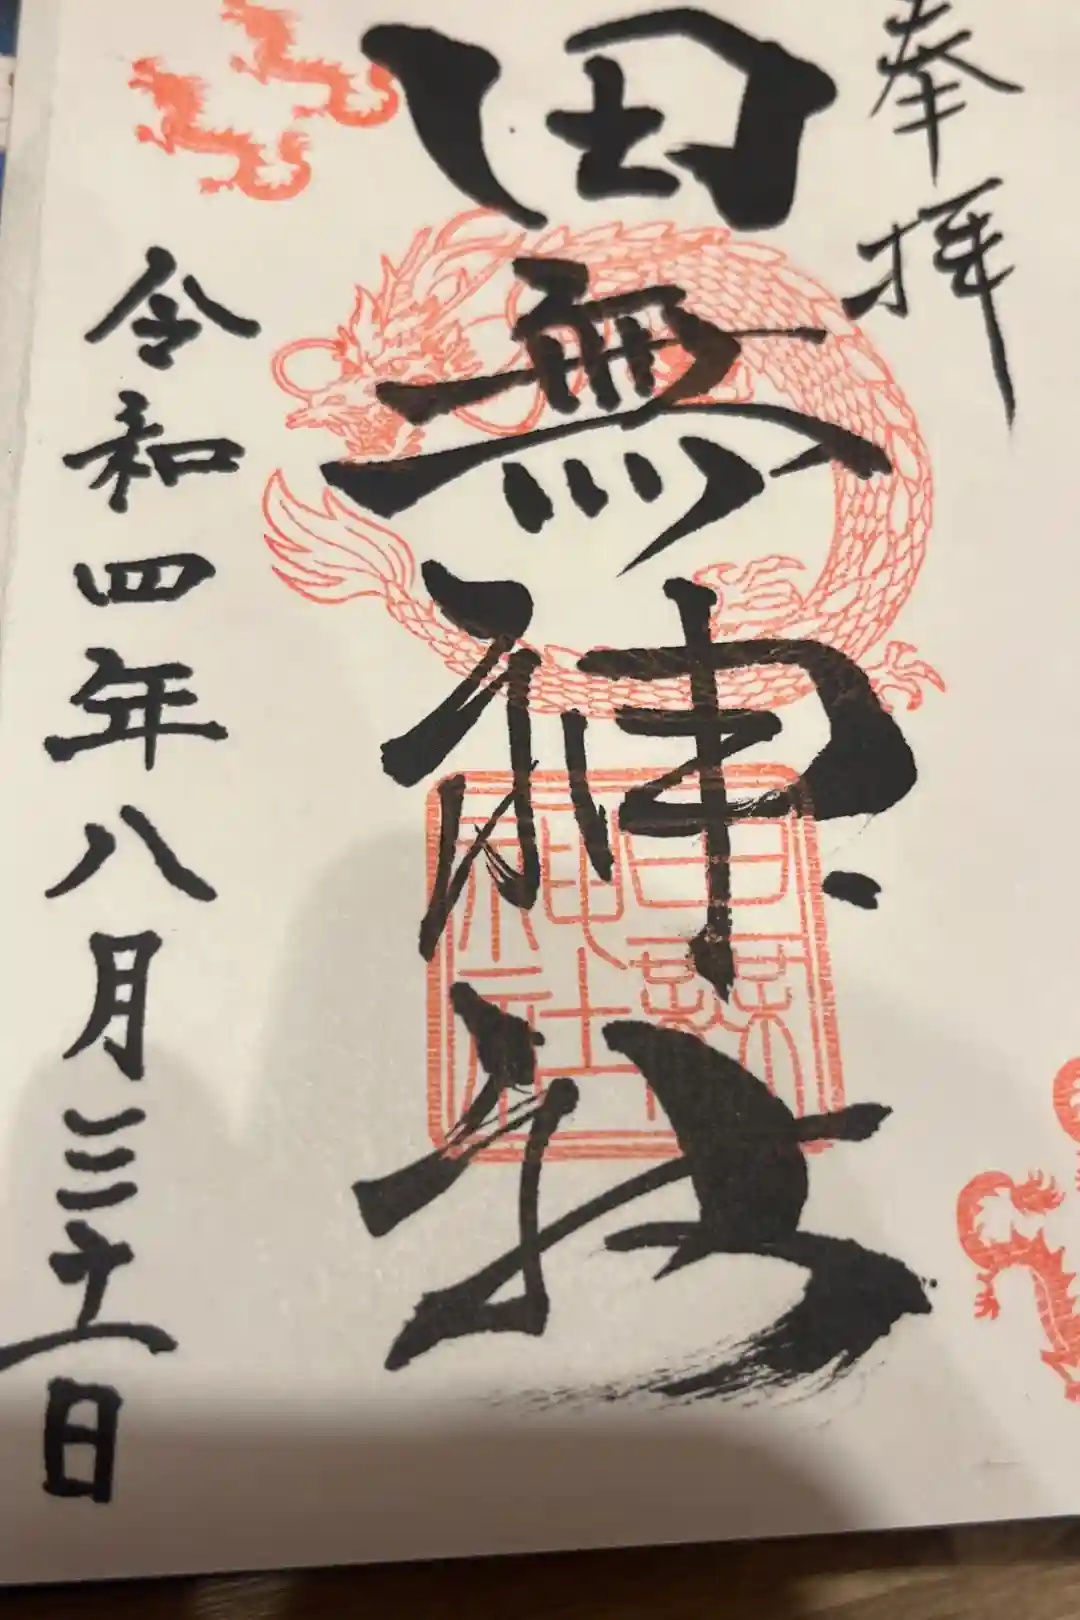 奉拝
田無神社
田無神社
令和四年八月三十一日